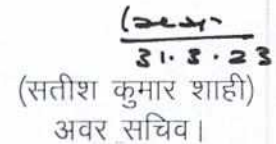 31.3.23
(सतीश कुमार शाही)
अवर सचिव।